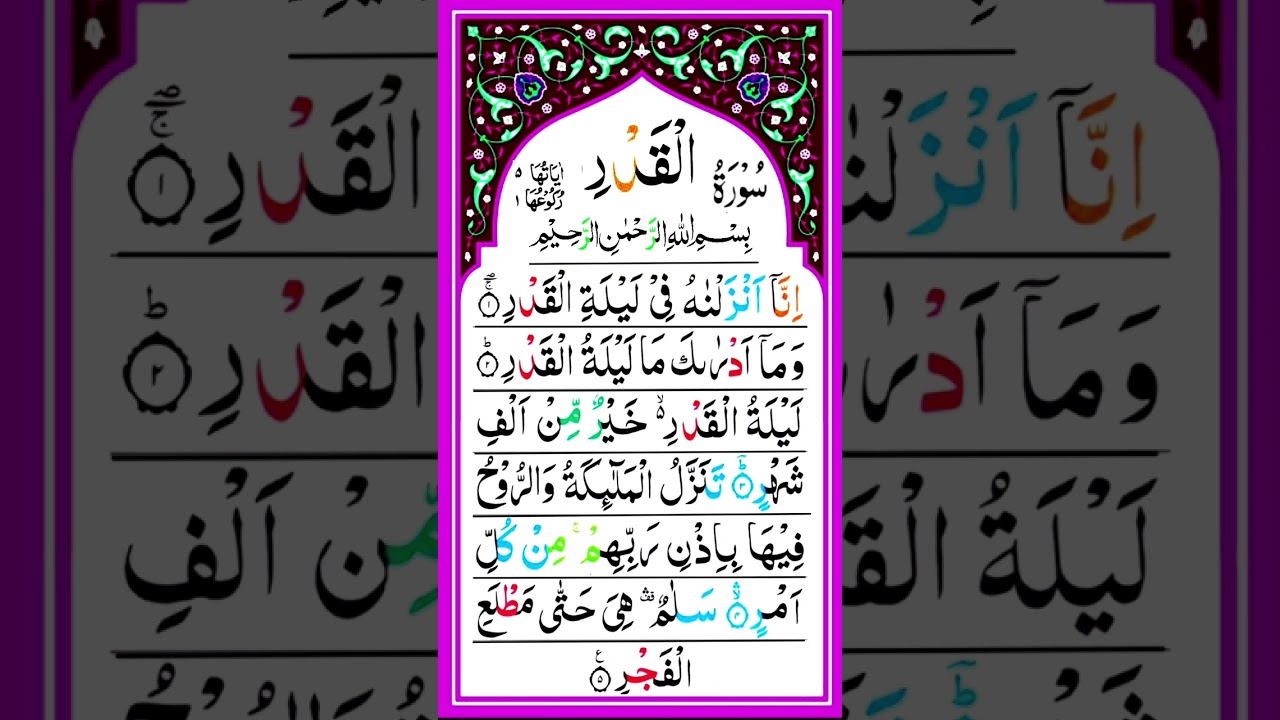 سُوْرَةُ الْقَدْرِ اٰيَاتُهَا ٥ رُكُوْعُهَا ١
بِسْمِ اللّٰهِ الرَّحْمٰنِ الرَّحِيْمِ
اِنَّاۤ اَنْزَلْنٰهُ فِيْ لَيْلَةِ الْقَدْرِ ۚۖ ۝١
وَمَاۤ اَدْرٰىكَ مَا لَيْلَةُ الْقَدْرِ ؕ ۝٢
لَيْلَةُ الْقَدْرِ ۙ۬ خَيْرٌ مِّنْ اَلْفِ
شَهْرٍ ؕؔ ۝٣ تَنَزَّلُ الْمَلٰٓئِكَةُ وَالرُّوْحُ
فِيْهَا بِاِذْنِ رَبِّهِمْ ۚ مِنْ كُلِّ
اَمْرٍ ۙۛ ۝٤ سَلٰمٌ ۛ۫ هِيَ حَتّٰى مَطْلَعِ
الْفَجْرِ ۝٥